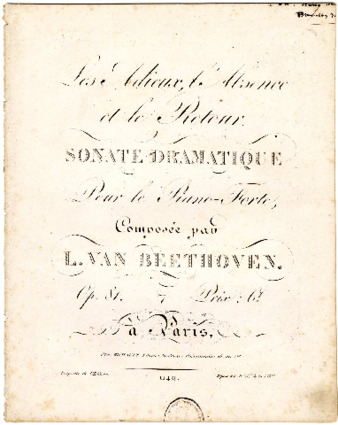 Les Adieux, l'Absence
et le Retour.
SONATE DRAMATIQUE
Pour le Piano-Forte,
Composée par
L. VAN BEETHOVEN.
Op. 81. Prix: 6f
à Paris,